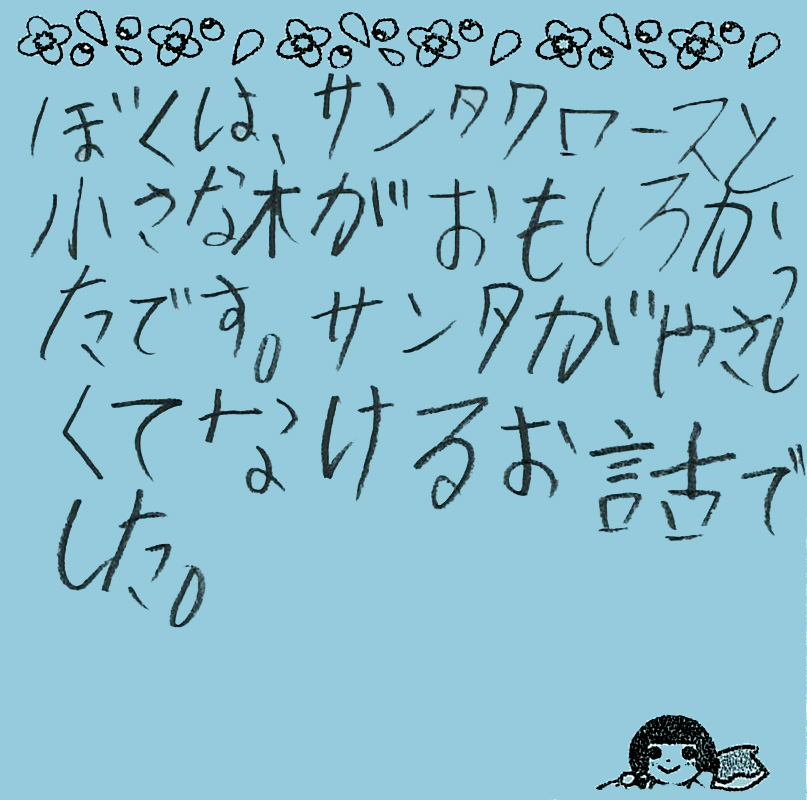 ぼくは、サンタクロースと
小さな木がおもしろかっ
たです。サンタがやさし
くてなけるお話で
した。